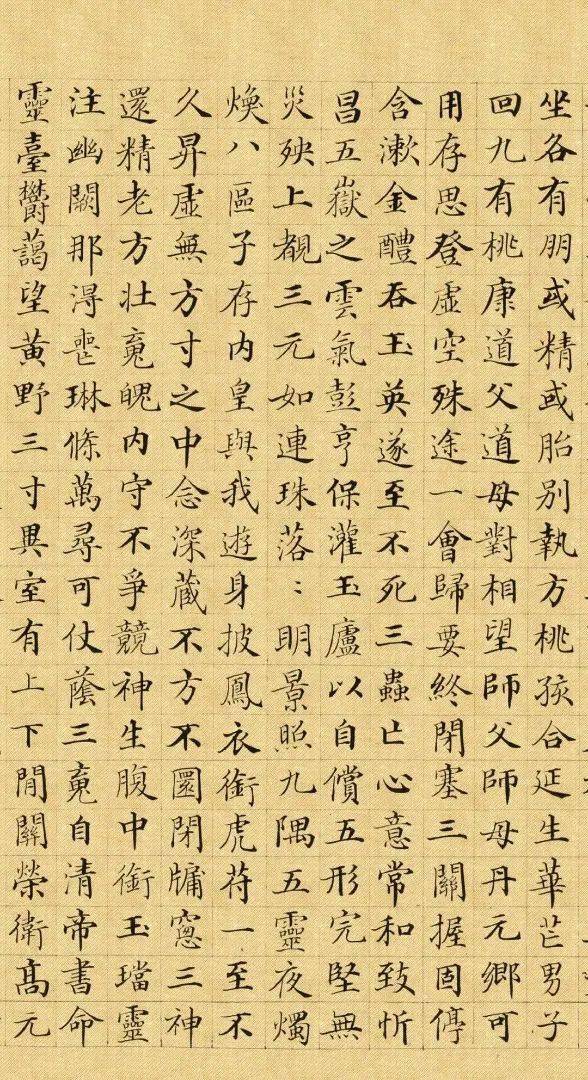 坐各有朋或精或胎別執方桃孩合延生華芒男子
回九有桃康道父道母對相望師父師母丹元鄉可
用存思登虛空殊途一會歸要終閉塞三關握固停
含漱金醴吞玉英遂至不死三蟲亡心意常和致忻
昌五嶽之雲氣彭亨保灌玉廬以自償五形完堅無
災殃上覩三元如連珠落〻明景照九隅五靈夜燭
煥八區子存內皇與我遊身披鳳衣銜虎苻一至不
久昇虛無方寸之中念深藏不方不圎閉牖窓三神
還精老方壯䰟魄內守不爭競神生腹中銜玉璫靈
注幽闕那得喪琳條萬尋可仗蔭三䰟自清帝書命
靈臺欝藹望黃野三寸異室有上下閒關榮衛髙元